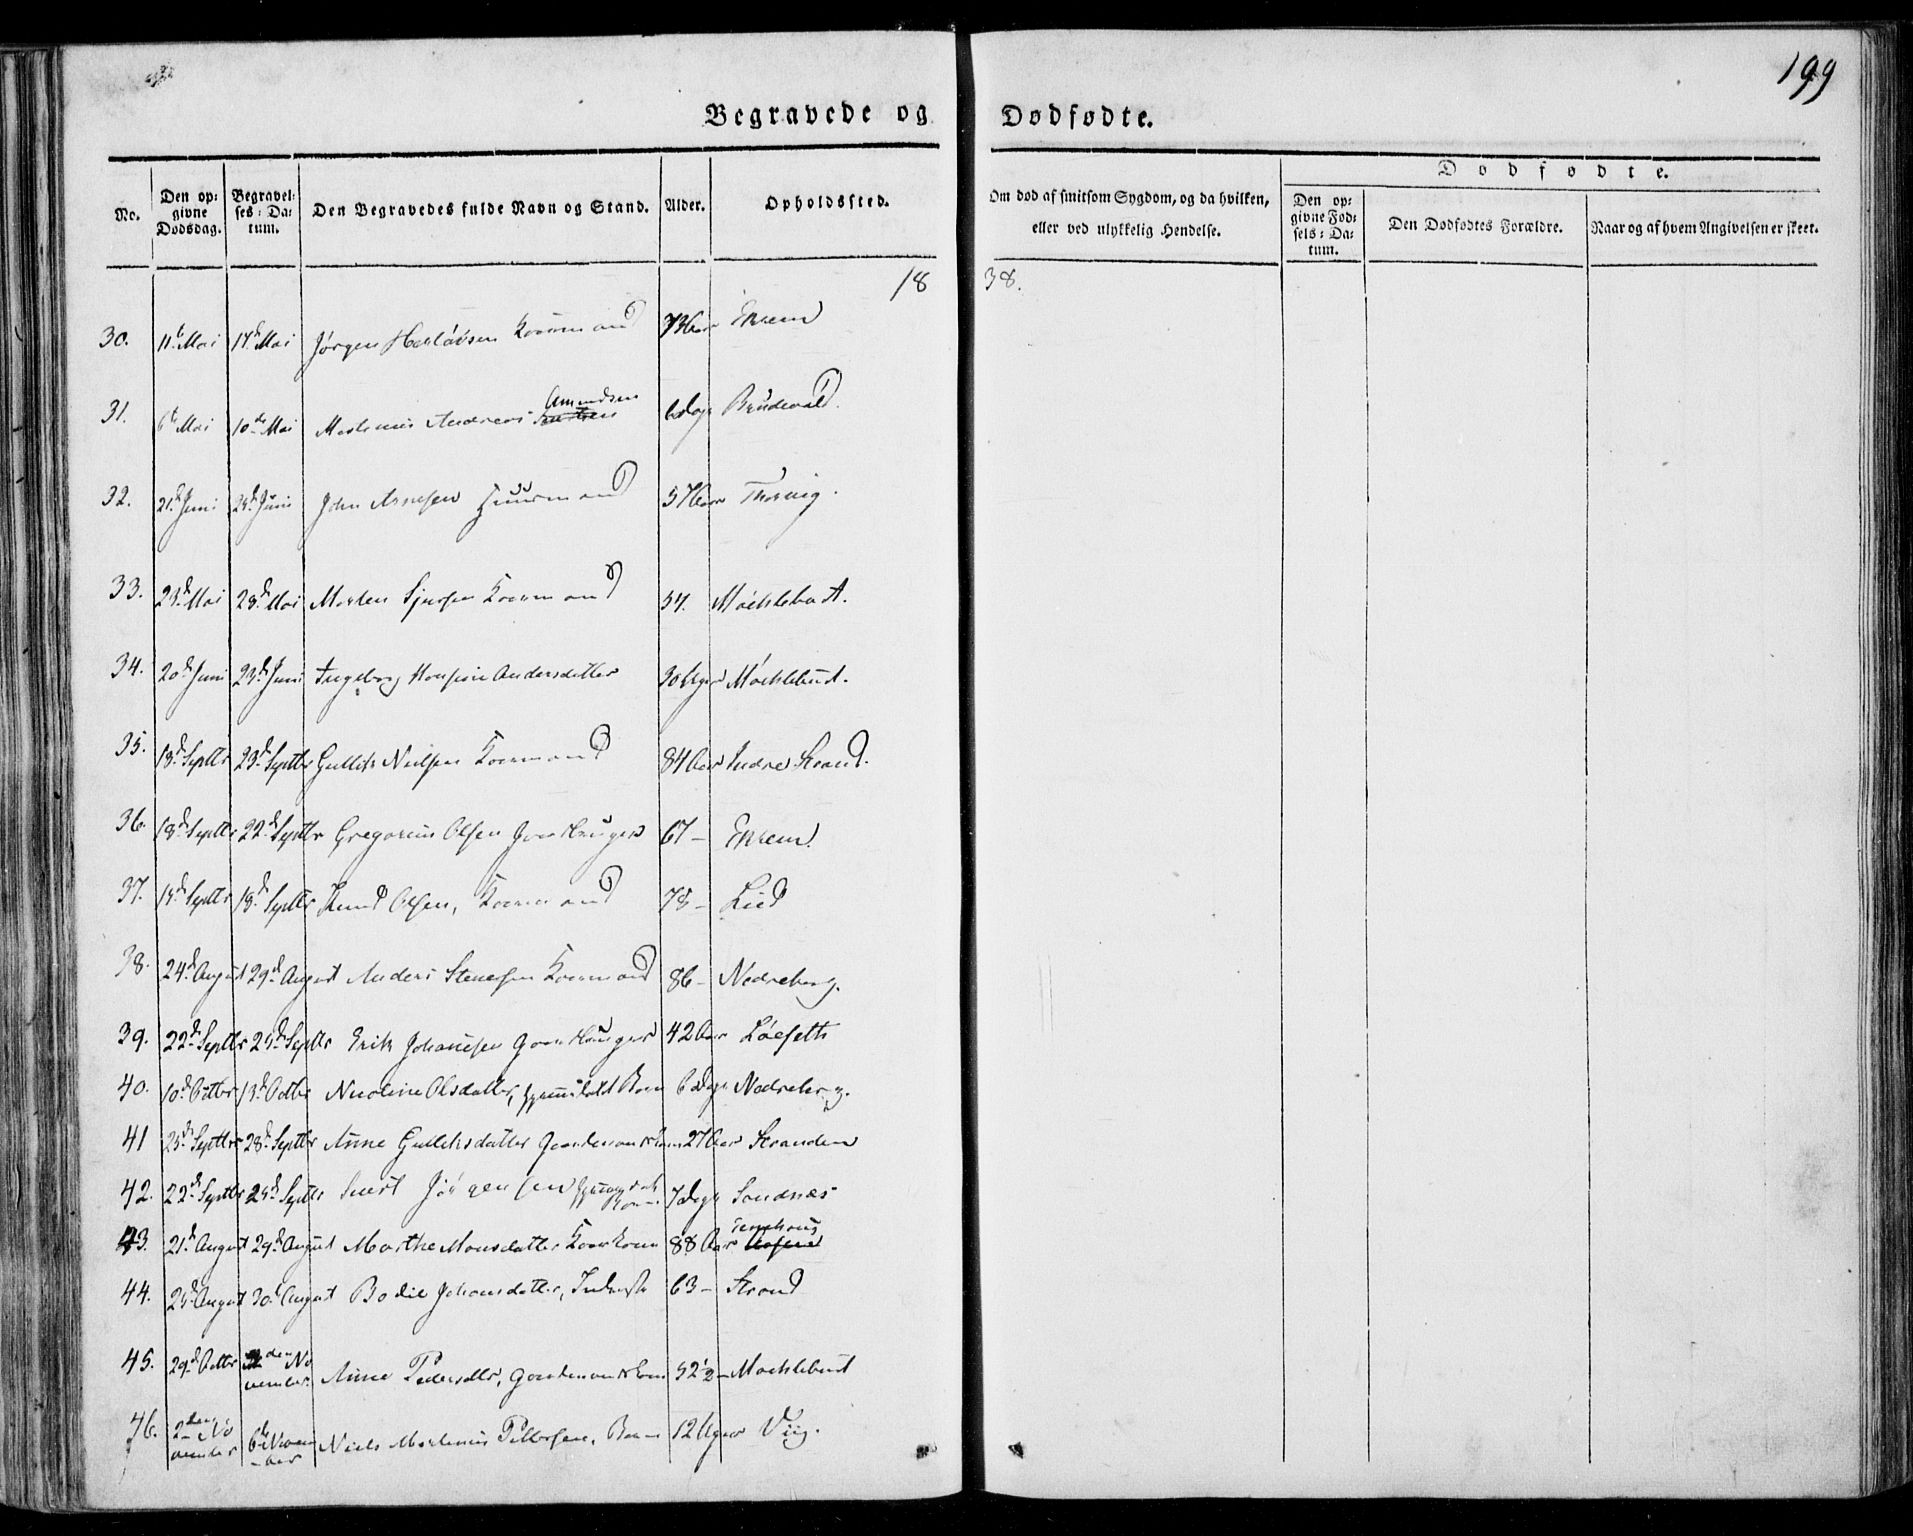 199
Begravede og Dødfødte.
No.
Den opgivne Dødsdag.
Begravelses-Datum.
Den Begravedes fulde Navn og Stand.
Alder.
Opholdssted.
Om død af smitsom Sygdom, og da hvilken, eller ved ulykkelig Hendelse.
Dødfødte.
Den opgivne Fødsels-Datum.
Den Dødfødtes Forældre.
Naar og af hvem Angivelsen er skeet.
1838.
30. 11te Mai 17de Mai Jørgen Kaarmand 73 Aar Ekrem
31. 6te Mai 10de Mai Andreas Amundsen 6 Dage Brudevold.
32. 21de Juni Juni John Arnesen Huusmand 57 Aar Thorvig.
33. 23de Mai 28de Mai Morten Kaarmand 57. Møchlebust.
34. 20de Juni 23de Juni Ingeborg Andersdatter 30 Uger Møchlebust.
35. 18de Septbr 23de Septbr Gullich Nielsen Kaarmand 84 Aar Indre Strand.
36. 18de Septbr 22de Septbr Gregorius Olsen Gaardbruger 67 – Ekrem.
37. Septbr 18de Septbr Knud Olsen, Kaarmand 78 – Lied
38. 24de August 29de August Anders Stenersen Kaarmand 86 – Nedreberg.
39. 22de Septbr 25de Septbr Erik Johansen Gaardbruger 42 Aar Løeseth
40. 10de Octbr 13de Octbr Nicoline Olsdatter, Barn 6 Dage Nedreberg.
41 25de Septbr 28de Septbr Anne Gullichsdatter Gaardmandskone 27 Aar Stranden
42. 22de Septbr 25de Septbr Sivert Jørgensen Barn 7 Dage Sandnæs
43. 21de August 29de August Marthe Monsdatter Kaarkone 88 Aar
44. 25de August 30de August Bodil Johansdatter, 63 – Strand
45. 29de Octbr den November Anne Pedersdtr, Gaardmandskone 52½ – Mochlebust
46. 2den November 6te November Niels Martinus Pettersen, Barn 12 Uger Viig.